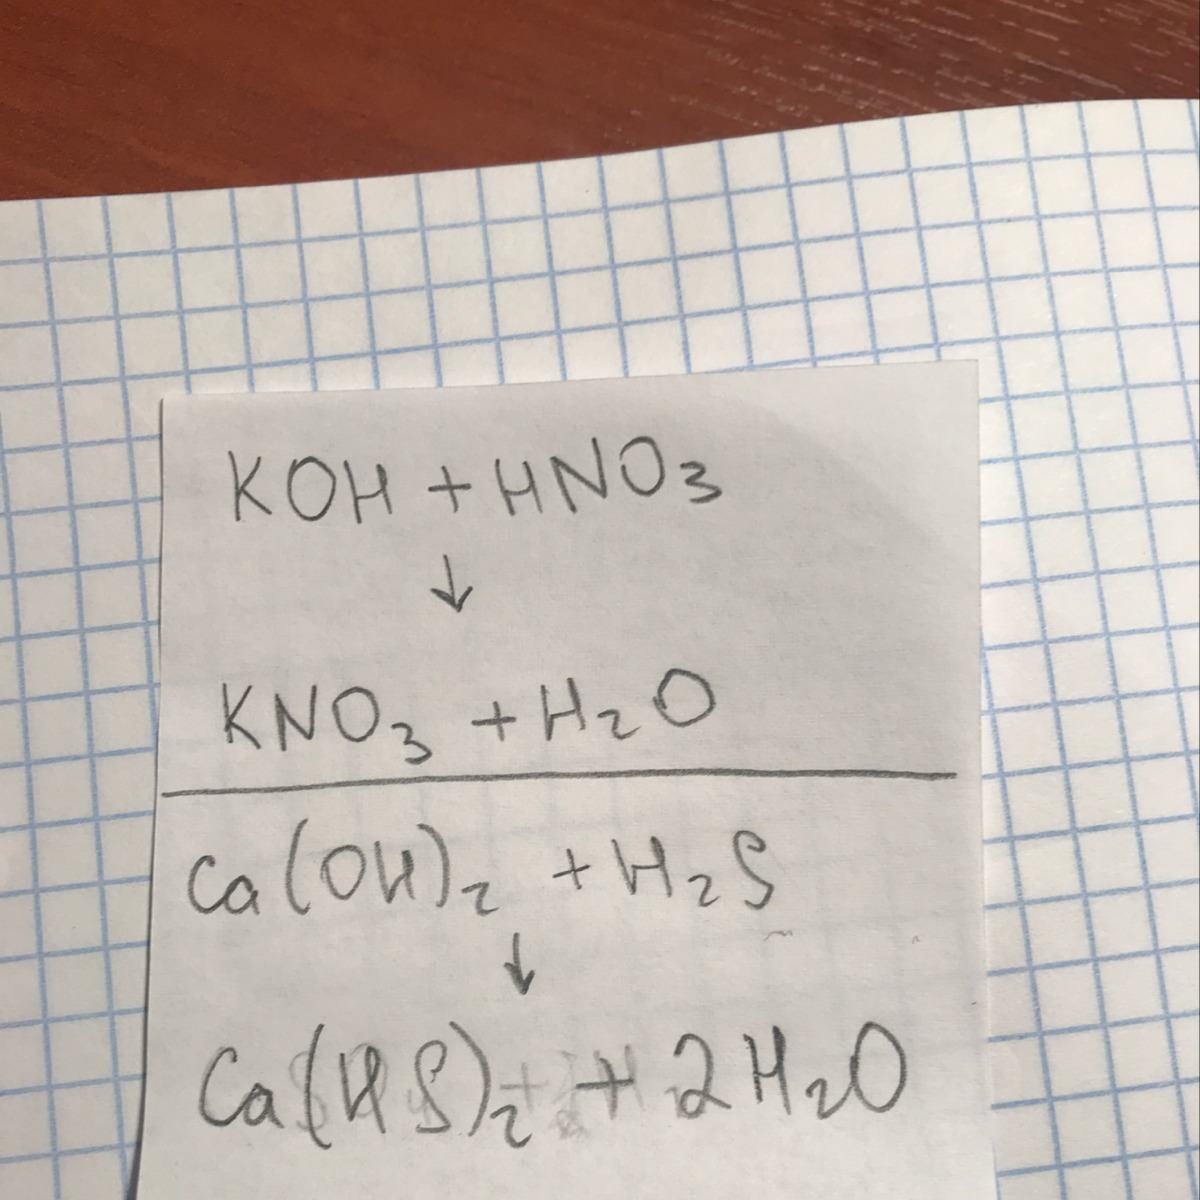 KOH + HNO₃
↓
KNO₃ + H₂O
Ca(OH)₂ + H₂S
↓
Ca(HS)₂ + 2H₂O